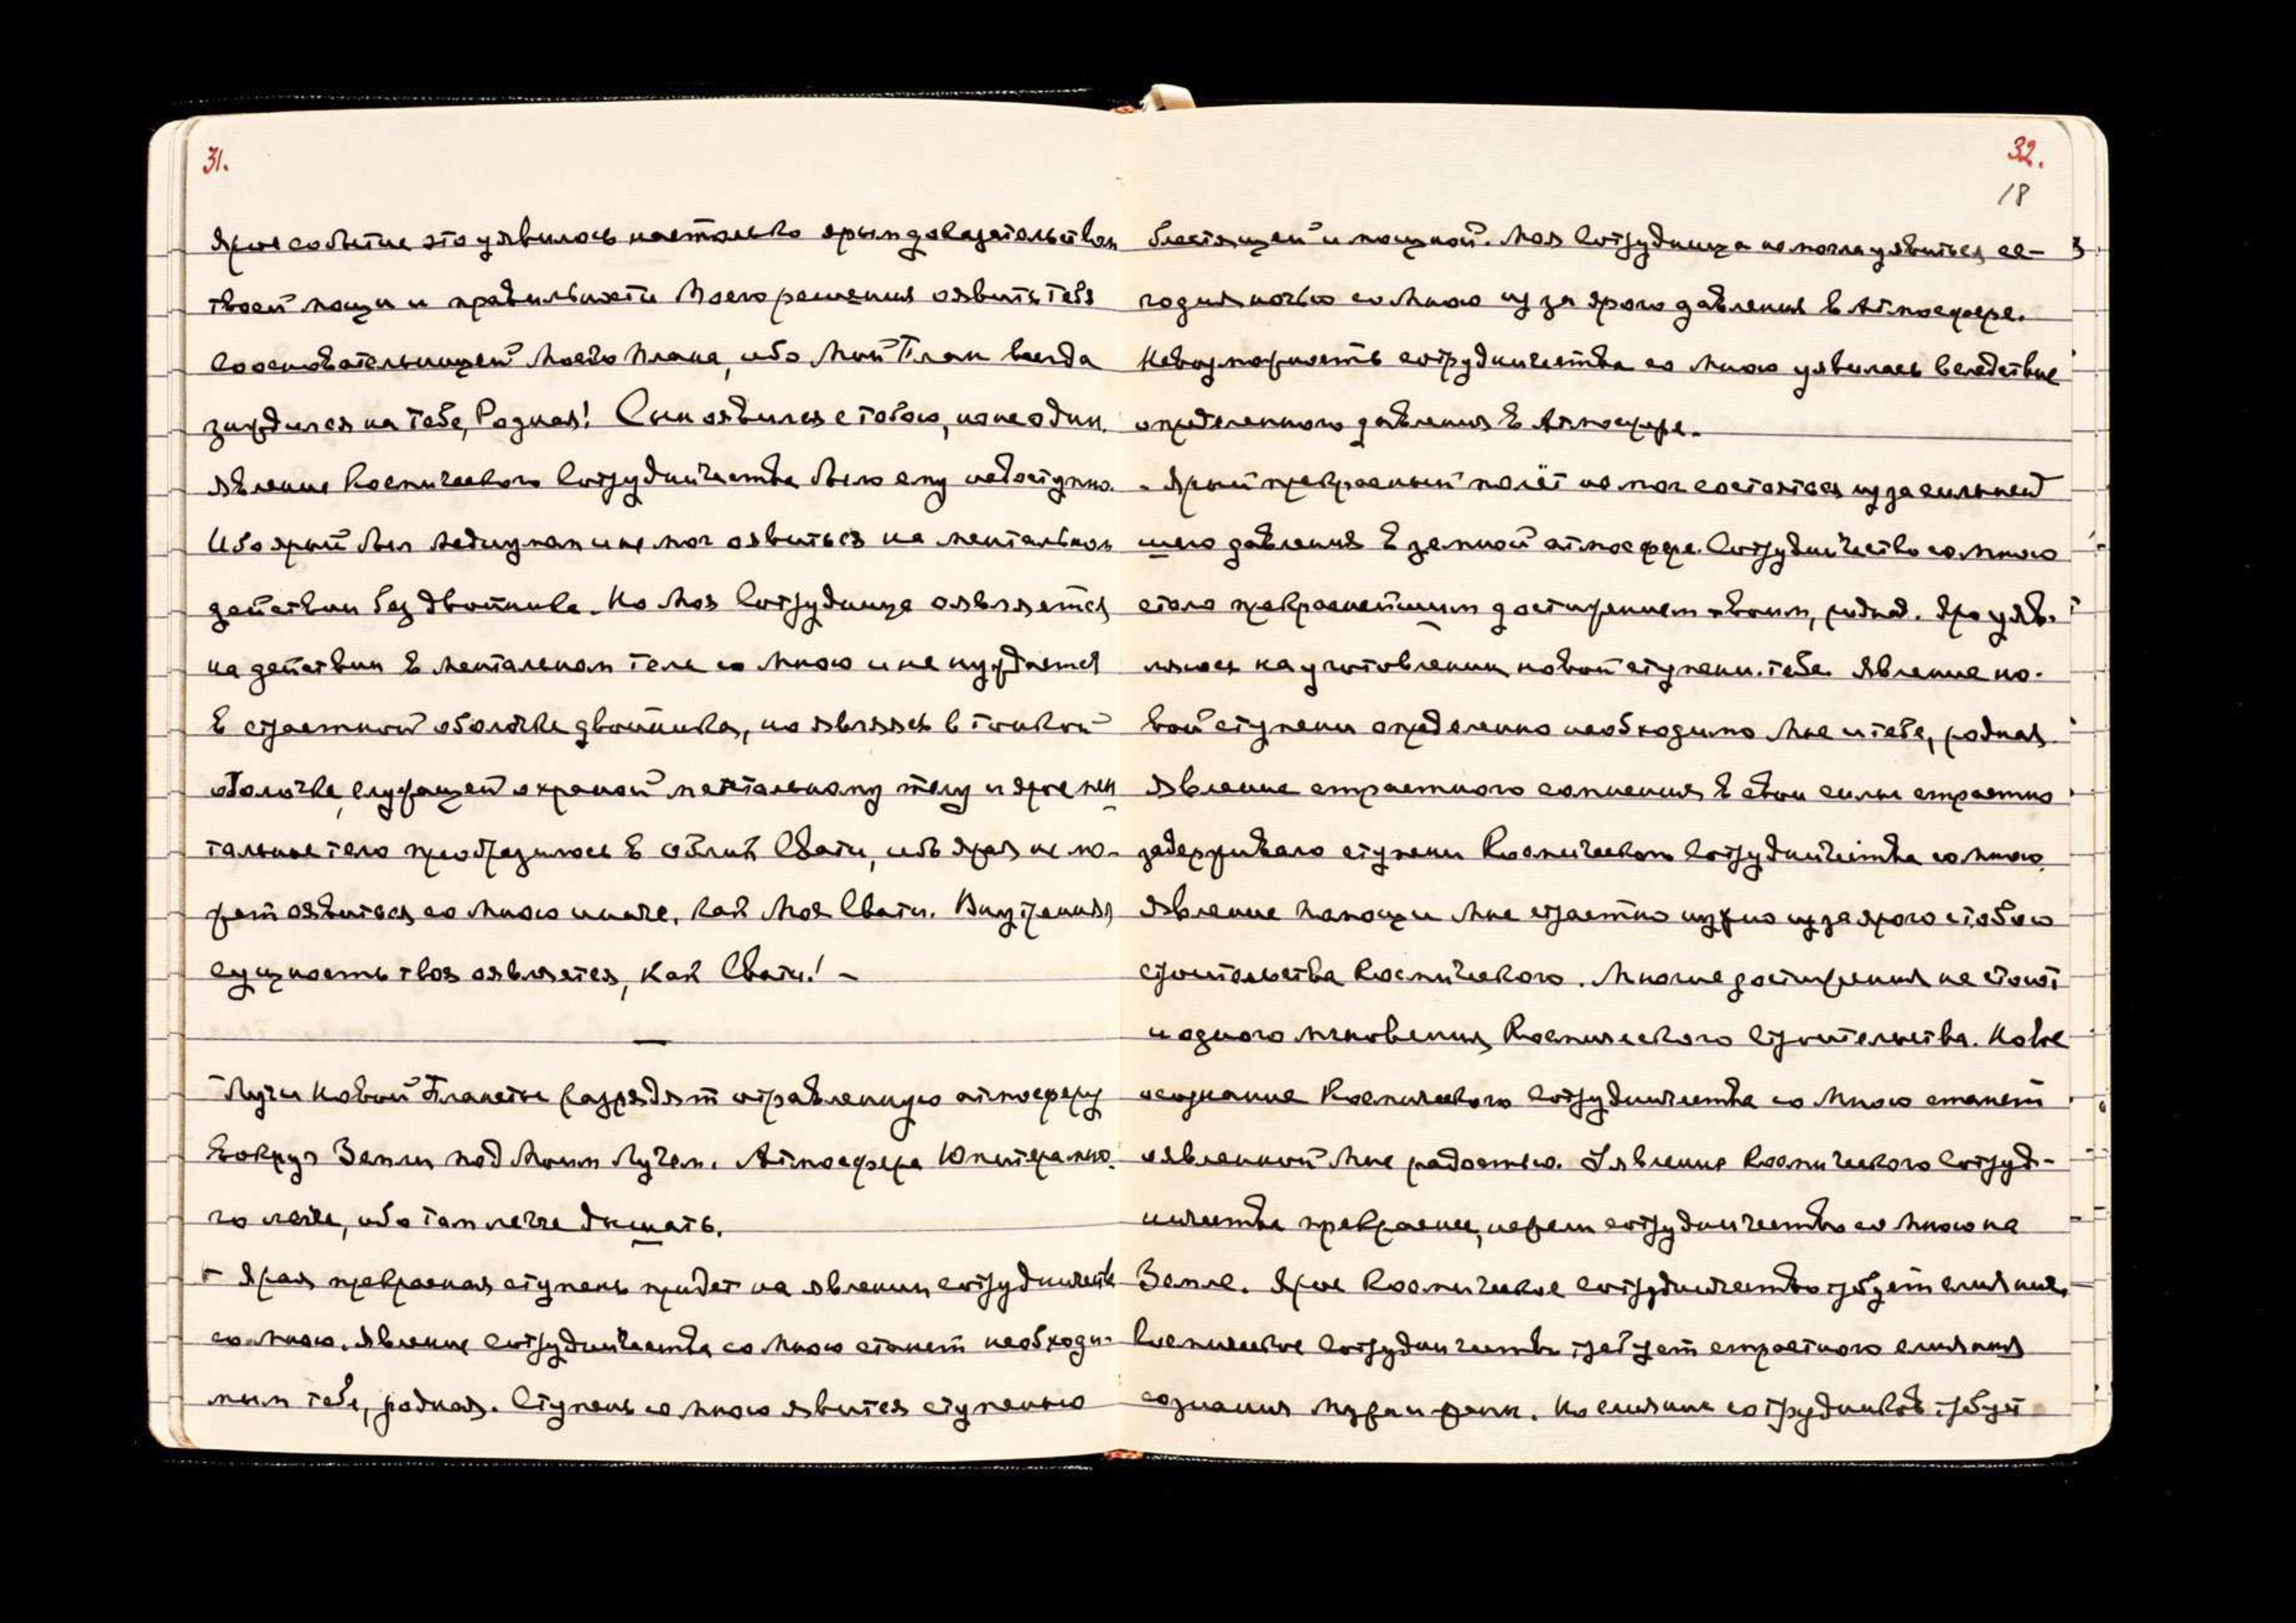 31.
Ярое событие это уявилось настолько ярым доказательством
твоей мощи и правильности Моего решения оявить тебя
Сооснова­тельницей Моего Плана, ибо Мой План всегда
зиждился на тебе, Родная! Сын оявился с тобою, но не один.
Явление Космического Сотрудничества было ему недоступно.
Ибо ярый был медиумом и не мог оявиться на ментальном
действии без двойника. Но Моя Сотрудница оявляется
на действии в ментальном теле со Мною и не нуждается
в страстной оболочке двойника, но являясь в тонкой
оболочке, служащей охраной ментальному телу и ярое мен
тальное тело преобразилось в облик Свати, ибо ярая не мо-
жет оявиться со Мною иначе, как Моя Свати. Внутренняя
сущность твоя оявляется, как Свати! –
—
Лучи Новой Планеты разрядят отравленную атмосферу
вокруг Земли под Моим Лучем. Атмосфера Юпитера мно-
го легче, ибо там легче дышать.
Ярая прекрасная ступень придет на явлении сотрудничеств
со Мною. Явление сотрудничества со Мною станет необходи-
мым тебе, родная. Ступень со Мною явится ступенью
32.
18
блестящей и мощной. Моя Сотрудница не могла уявиться се-
годня ночью со Мною из за ярого давления в Атмосфере.
Невозможность сотрудничества со Мною уявилась вследствие
определенного давления в Атмосфере.
– Ярый прекрасный полёт не мог состояться из за сильней
шего давления в земной атмосфере. Сотрудничество со Мною
стало прекраснейшим достижением твоим, родная. Яро уяв-
ляюсь на уготовлении новой ступени тебе. Явление но-
вой ступени определенно необходимо Мне и тебе, родная.
Явление страстного сомнения в свои силы страстно
задерживало ступени Космического Сотрудничества со Мною.
Явление помощи Мне страстно нужно из за ярого с тобою
строительства Космического. Многие достижения не стоят
и одного мгновения Космического Строительства. Новое
осознание Космического Сотрудничества со Мною станет
оявленной Мне радостью. Уявление Космического Сотруд-
ничества прекраснее, нежели сотрудничество со Мною на
Земле. Ярое Космическое сотрудничество требует слияния.
Космическое Сотрудничество требует страстного слияния
сознания Мужа и жены. Но слияние сотрудников требует